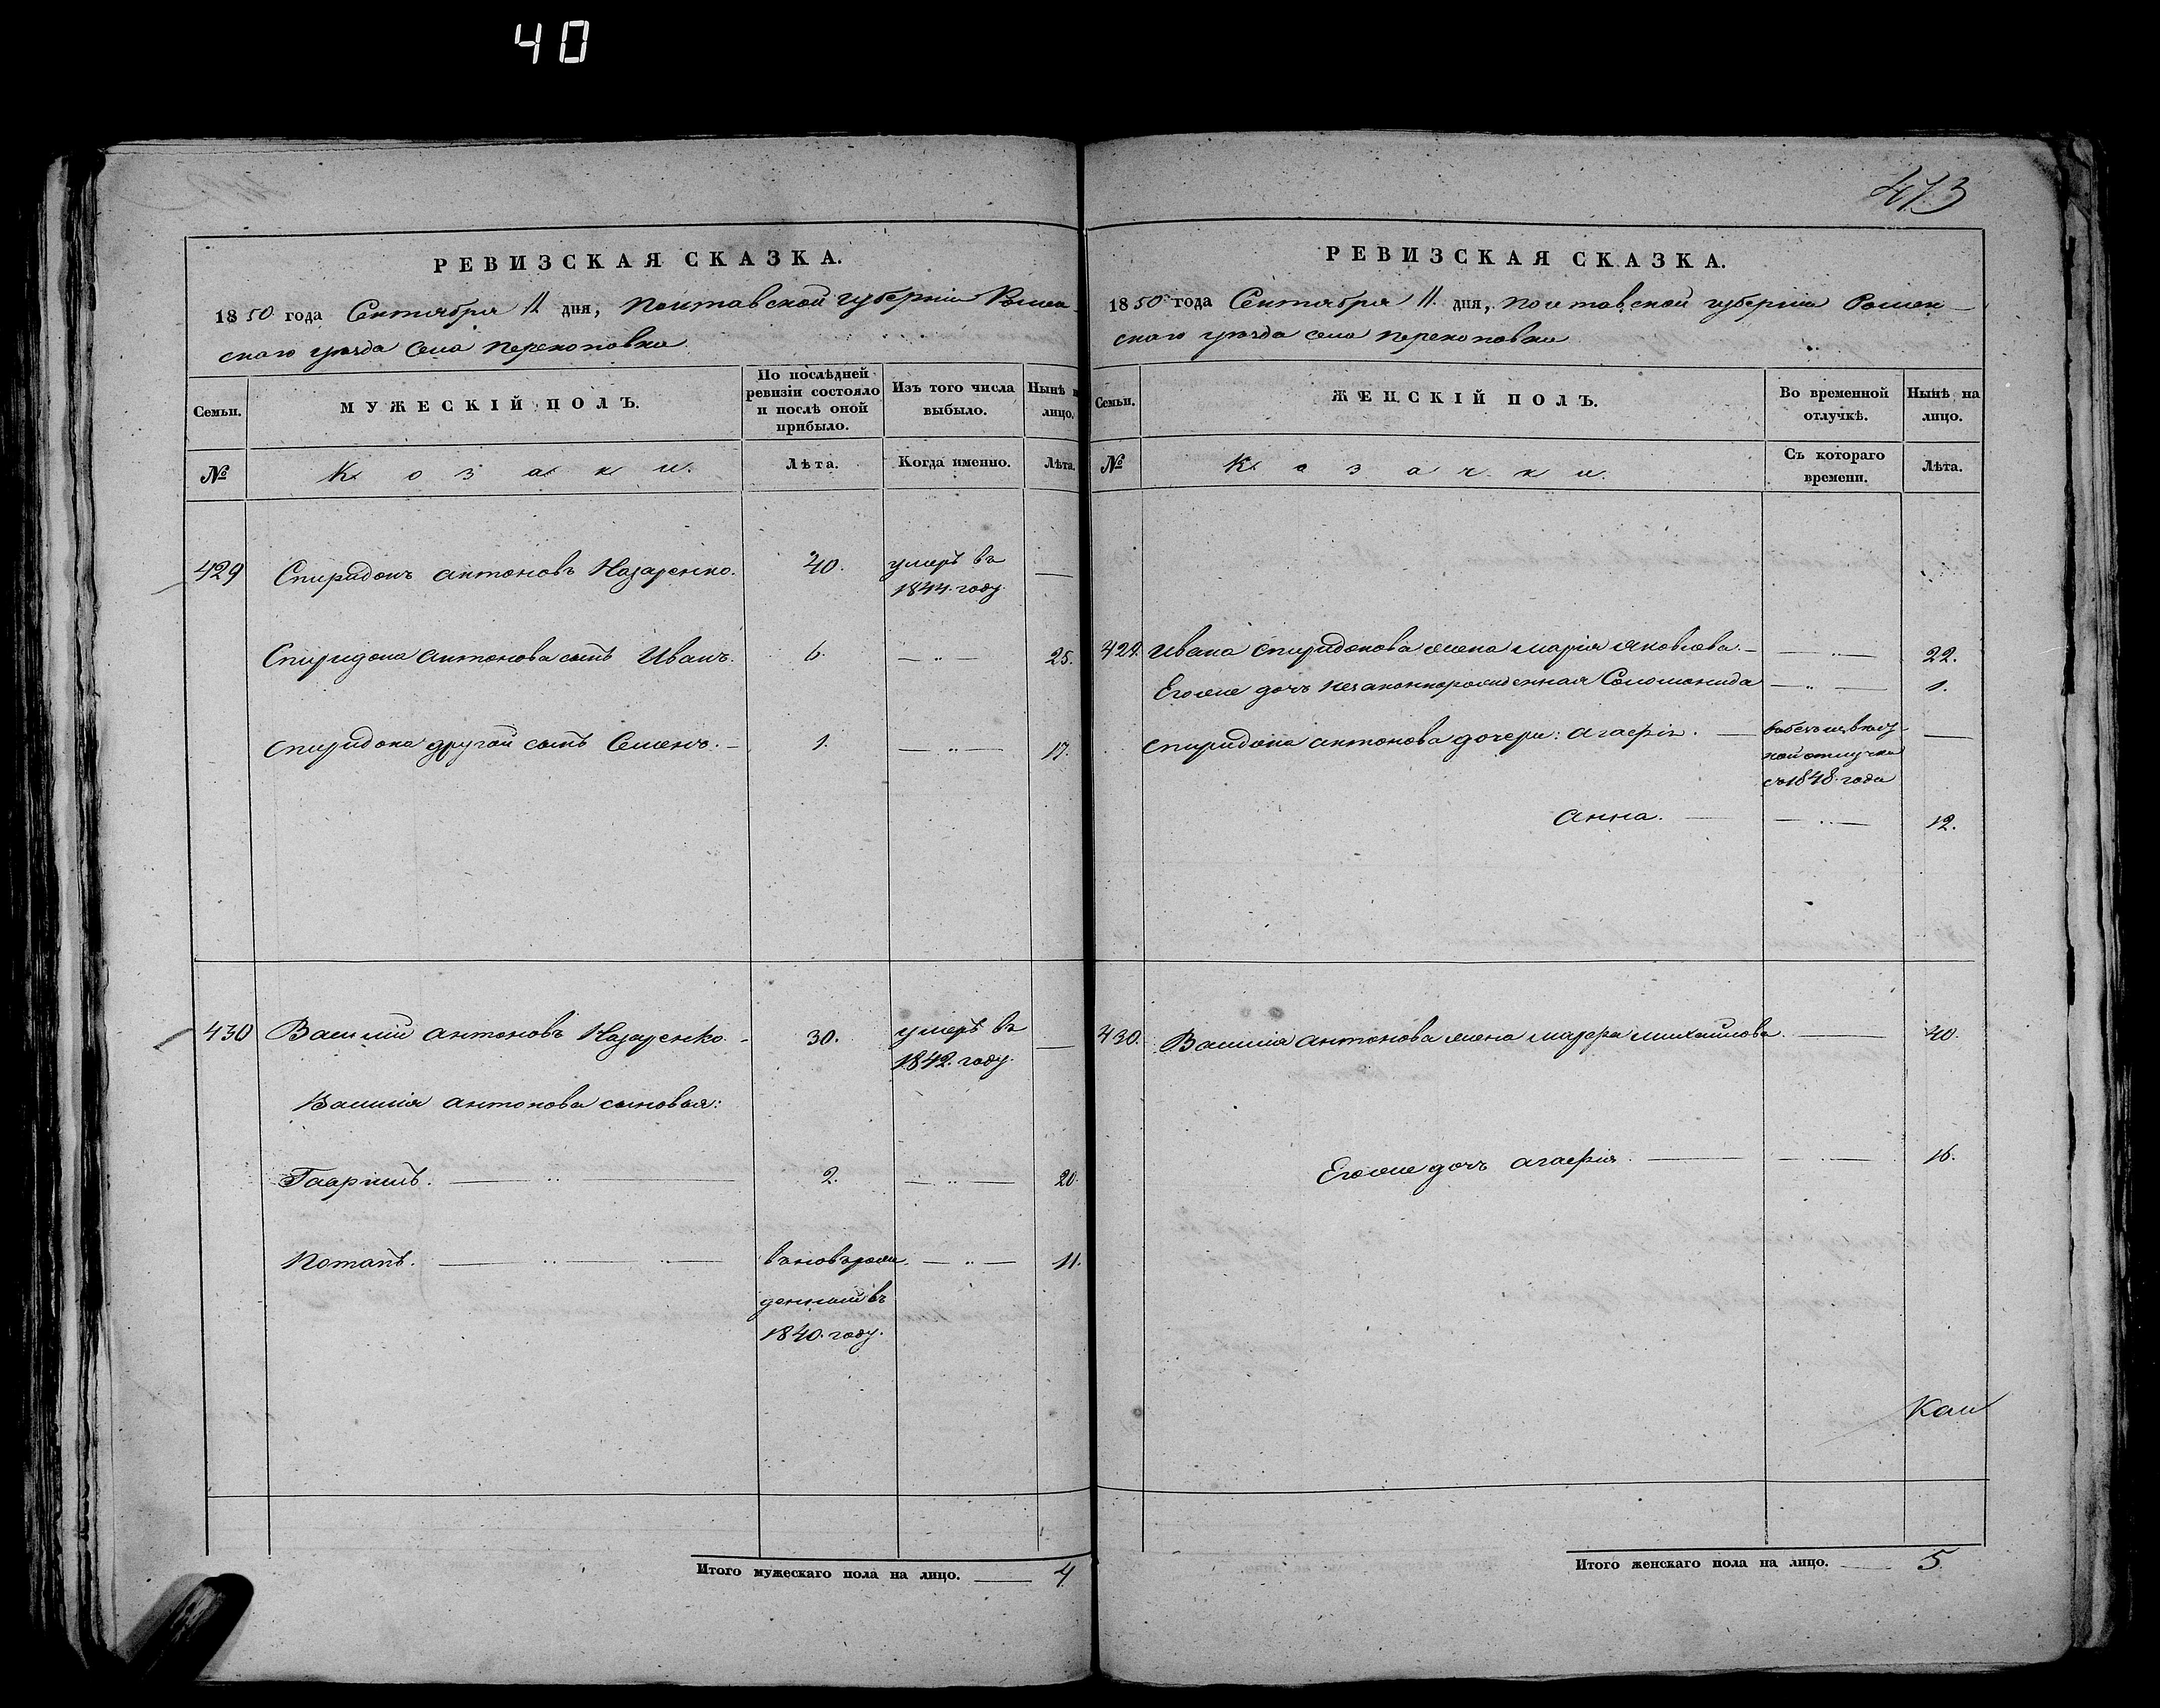 40
473
РЕВИЗСКАЯ СКАЗКА.
1850 года Сентября 11 дня, Полтавской губерніи Ромен-
скаго уѣзда села Перекоповки
Семьи.
МУЖЕСКІЙ ПОЛЪ.
По послѣдней ревизіи состояло и послѣ оной прибыло.
Изъ того числа выбыло.
Нынѣ н лицо.
№
Козаки.
Лѣта.
Когда именно.
Лѣта.
429 Спиридонъ Антоновъ Назаренко. 40. умеръ въ —
1844. году.
Спиридона Антонова сынъ Иванъ. 6. — „ — 25.
Спиридона другой сынъ Семенъ. — 1. — „ — 17.
430 Василій Антоновъ Назаренко. - 30. умеръ въ —
1842. году.
Василія Антонова сыновья:
Гавріилъ. — „ — 2. — „ — 20.
Потапъ. — „ — „ — вановърож. — „ — 11.
денный въ
1840. году.
Итого мужескаго пола на лицо. — 4.
РЕВИЗСКАЯ СКАЗКА.
1850 года Сентября 11. дня, Полтавской губерніи Ромен-
скаго уѣзда села Перекоповки
Семьи.
ЖЕНСКІЙ ПОЛЪ.
Во временной отлучкѣ.
Нынѣ на лицо.
№
Козачки.
Съ котораго времени.
Лѣта.
429. Ивана Спиридонова жена Марія Яковлева. — — „ — 22.
Егоже дочь незаконнорожденная Соломонида — „ — 1.
Спиридона Антонова дочери: Агафія. — —
ной отлучке
съ 1848. года
Анна. — — „ — 12.
430. Василія Антонова жена Марфа Михайлова. — 40.
Егоже дочь Агафія. — — „ — 16.
Итого женскаго пола на лицо. — 5.